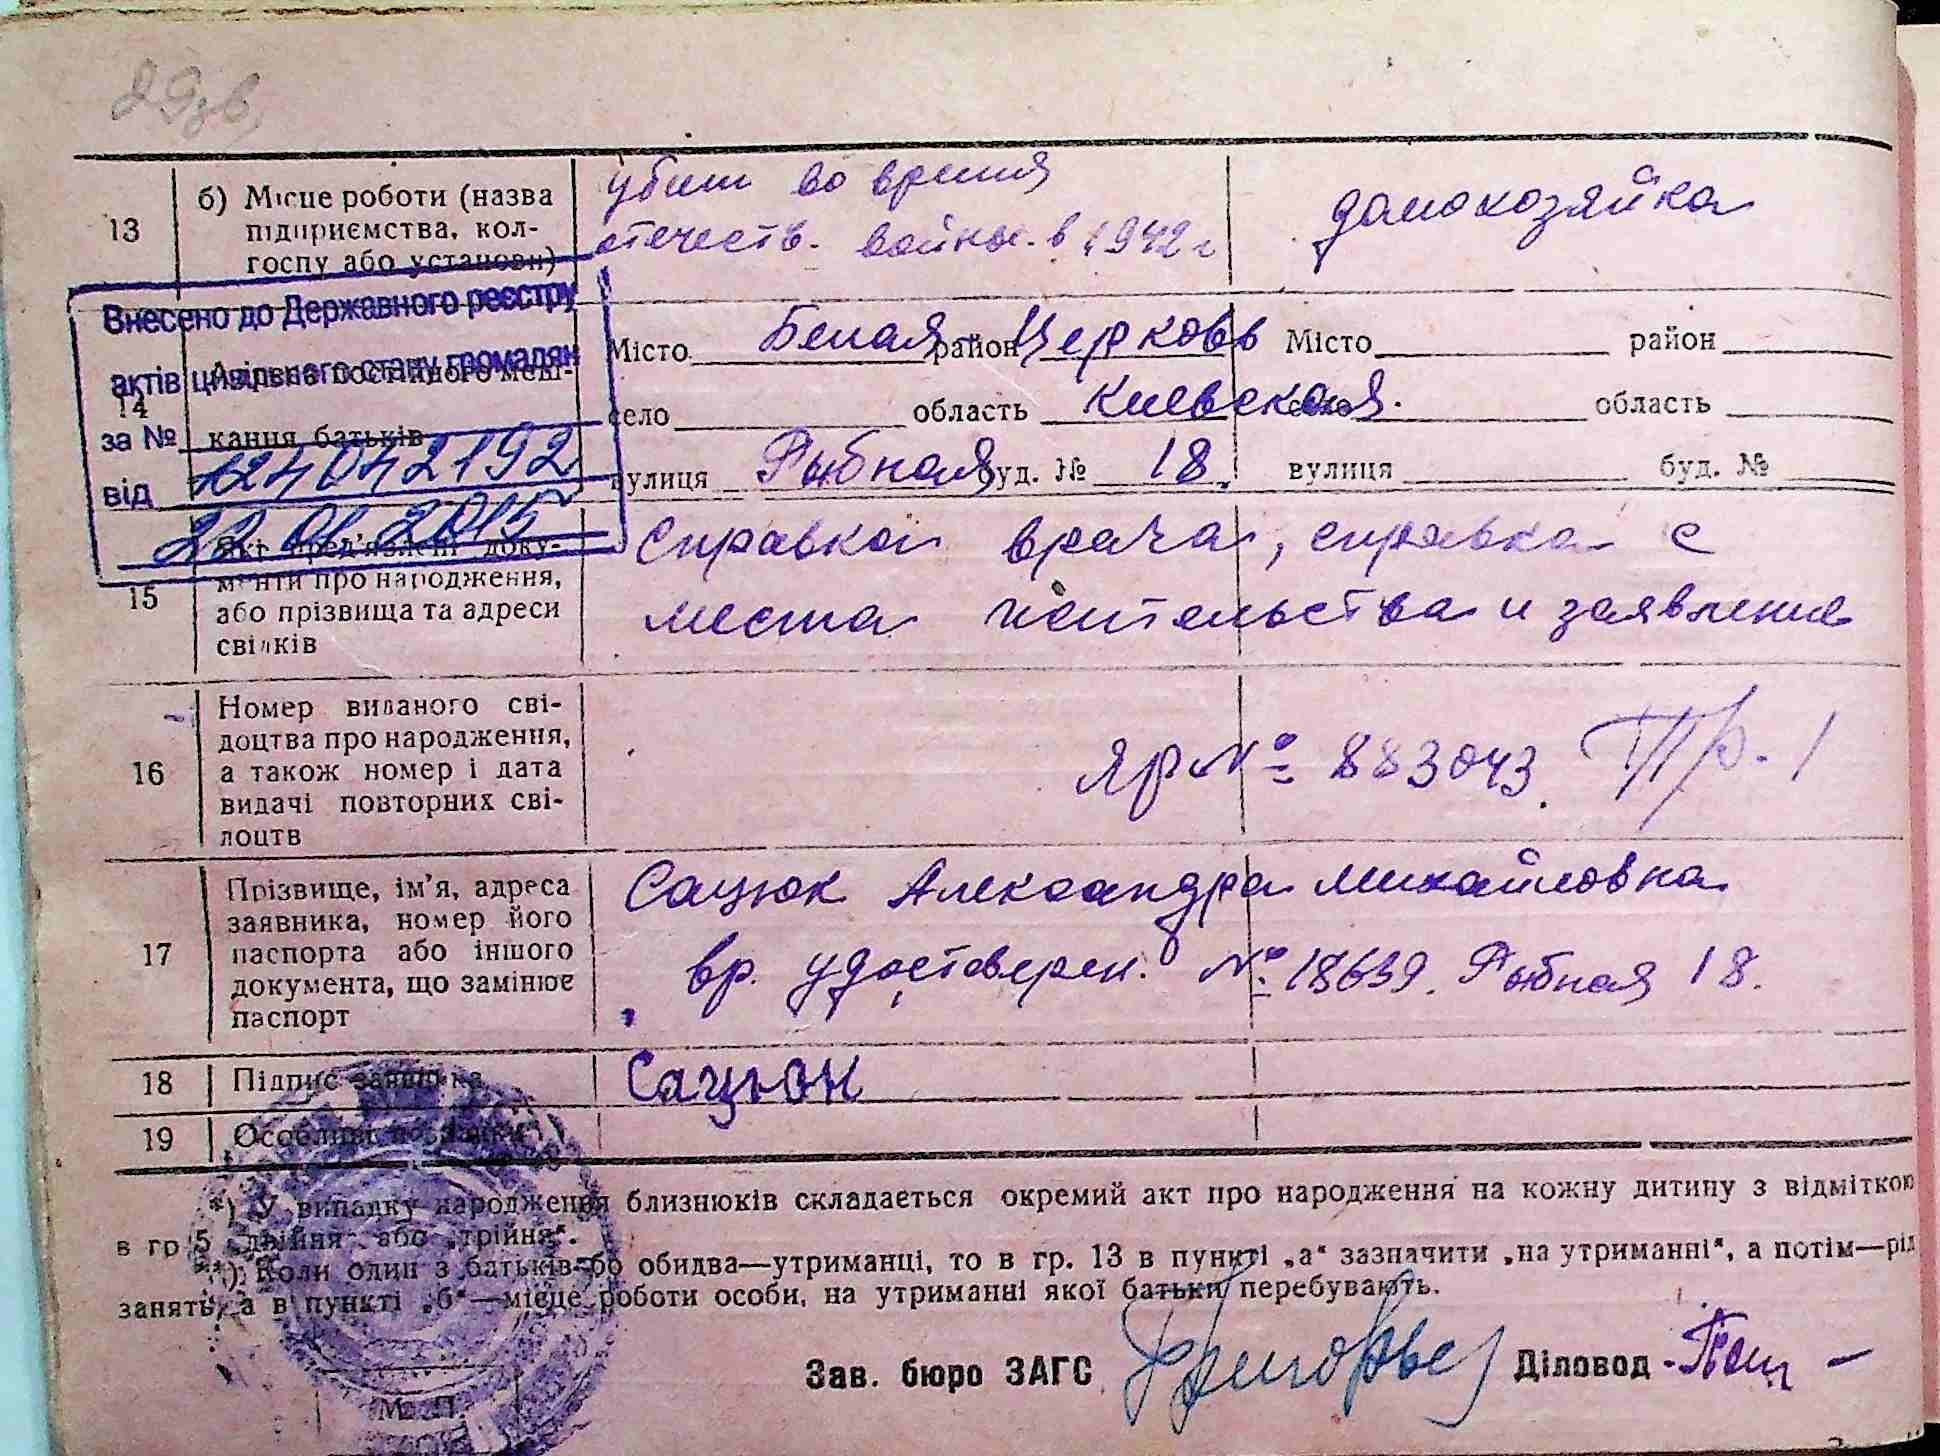 29зв
13
б) Місце роботи (назва
підприємства, кол-
госпу або установи)
убит во время
отечеств. войны. в 1942 г
домохозяйка
Внесено до Державного реєстру
актів цивільного стану громадян
за №
12404 2192
від
22 01 2015
14
Адреса постійного меш-
канця батьків
Місто Белая район Церковь
село область Киевская.
вулиця Рыбная буд. № 18.
Місто район
село область
вулиця буд. №
15
Які пред'явлені доку-
менти про народження,
або прізвища та адреси
свідків
Справка врача, справка с
места жительства и заявление
16
Номер виданого сві-
доцтва про народження,
а також номер і дата
видачі повторних сві-
доцтв
ЯР № 883043.
17
Прізвище, ім'я, адреса
заявника, номер його
паспорта або іншого
документа, що замінює
паспорт
Сацюк Александра Михайловна
вр. удостверен. № 18639. Рыбная 18.
18
Підпис заявника
Сацюк
19
Особливі
*) У випадку народження близнюків складається окремий акт про народження на кожну дитину з відміткою
в гр 5 „двійня“ або „трійня“.
Коли один з батьків бо обидва—утриманці, то в гр. 13 в пункті „а“ зазначити „на утриманні“, а потім—рід
занять, а в пункті „б“—місце роботи особи, на утриманні якої батьки перебувають.
Зав. бюро ЗАГС
Діловод
М. П.